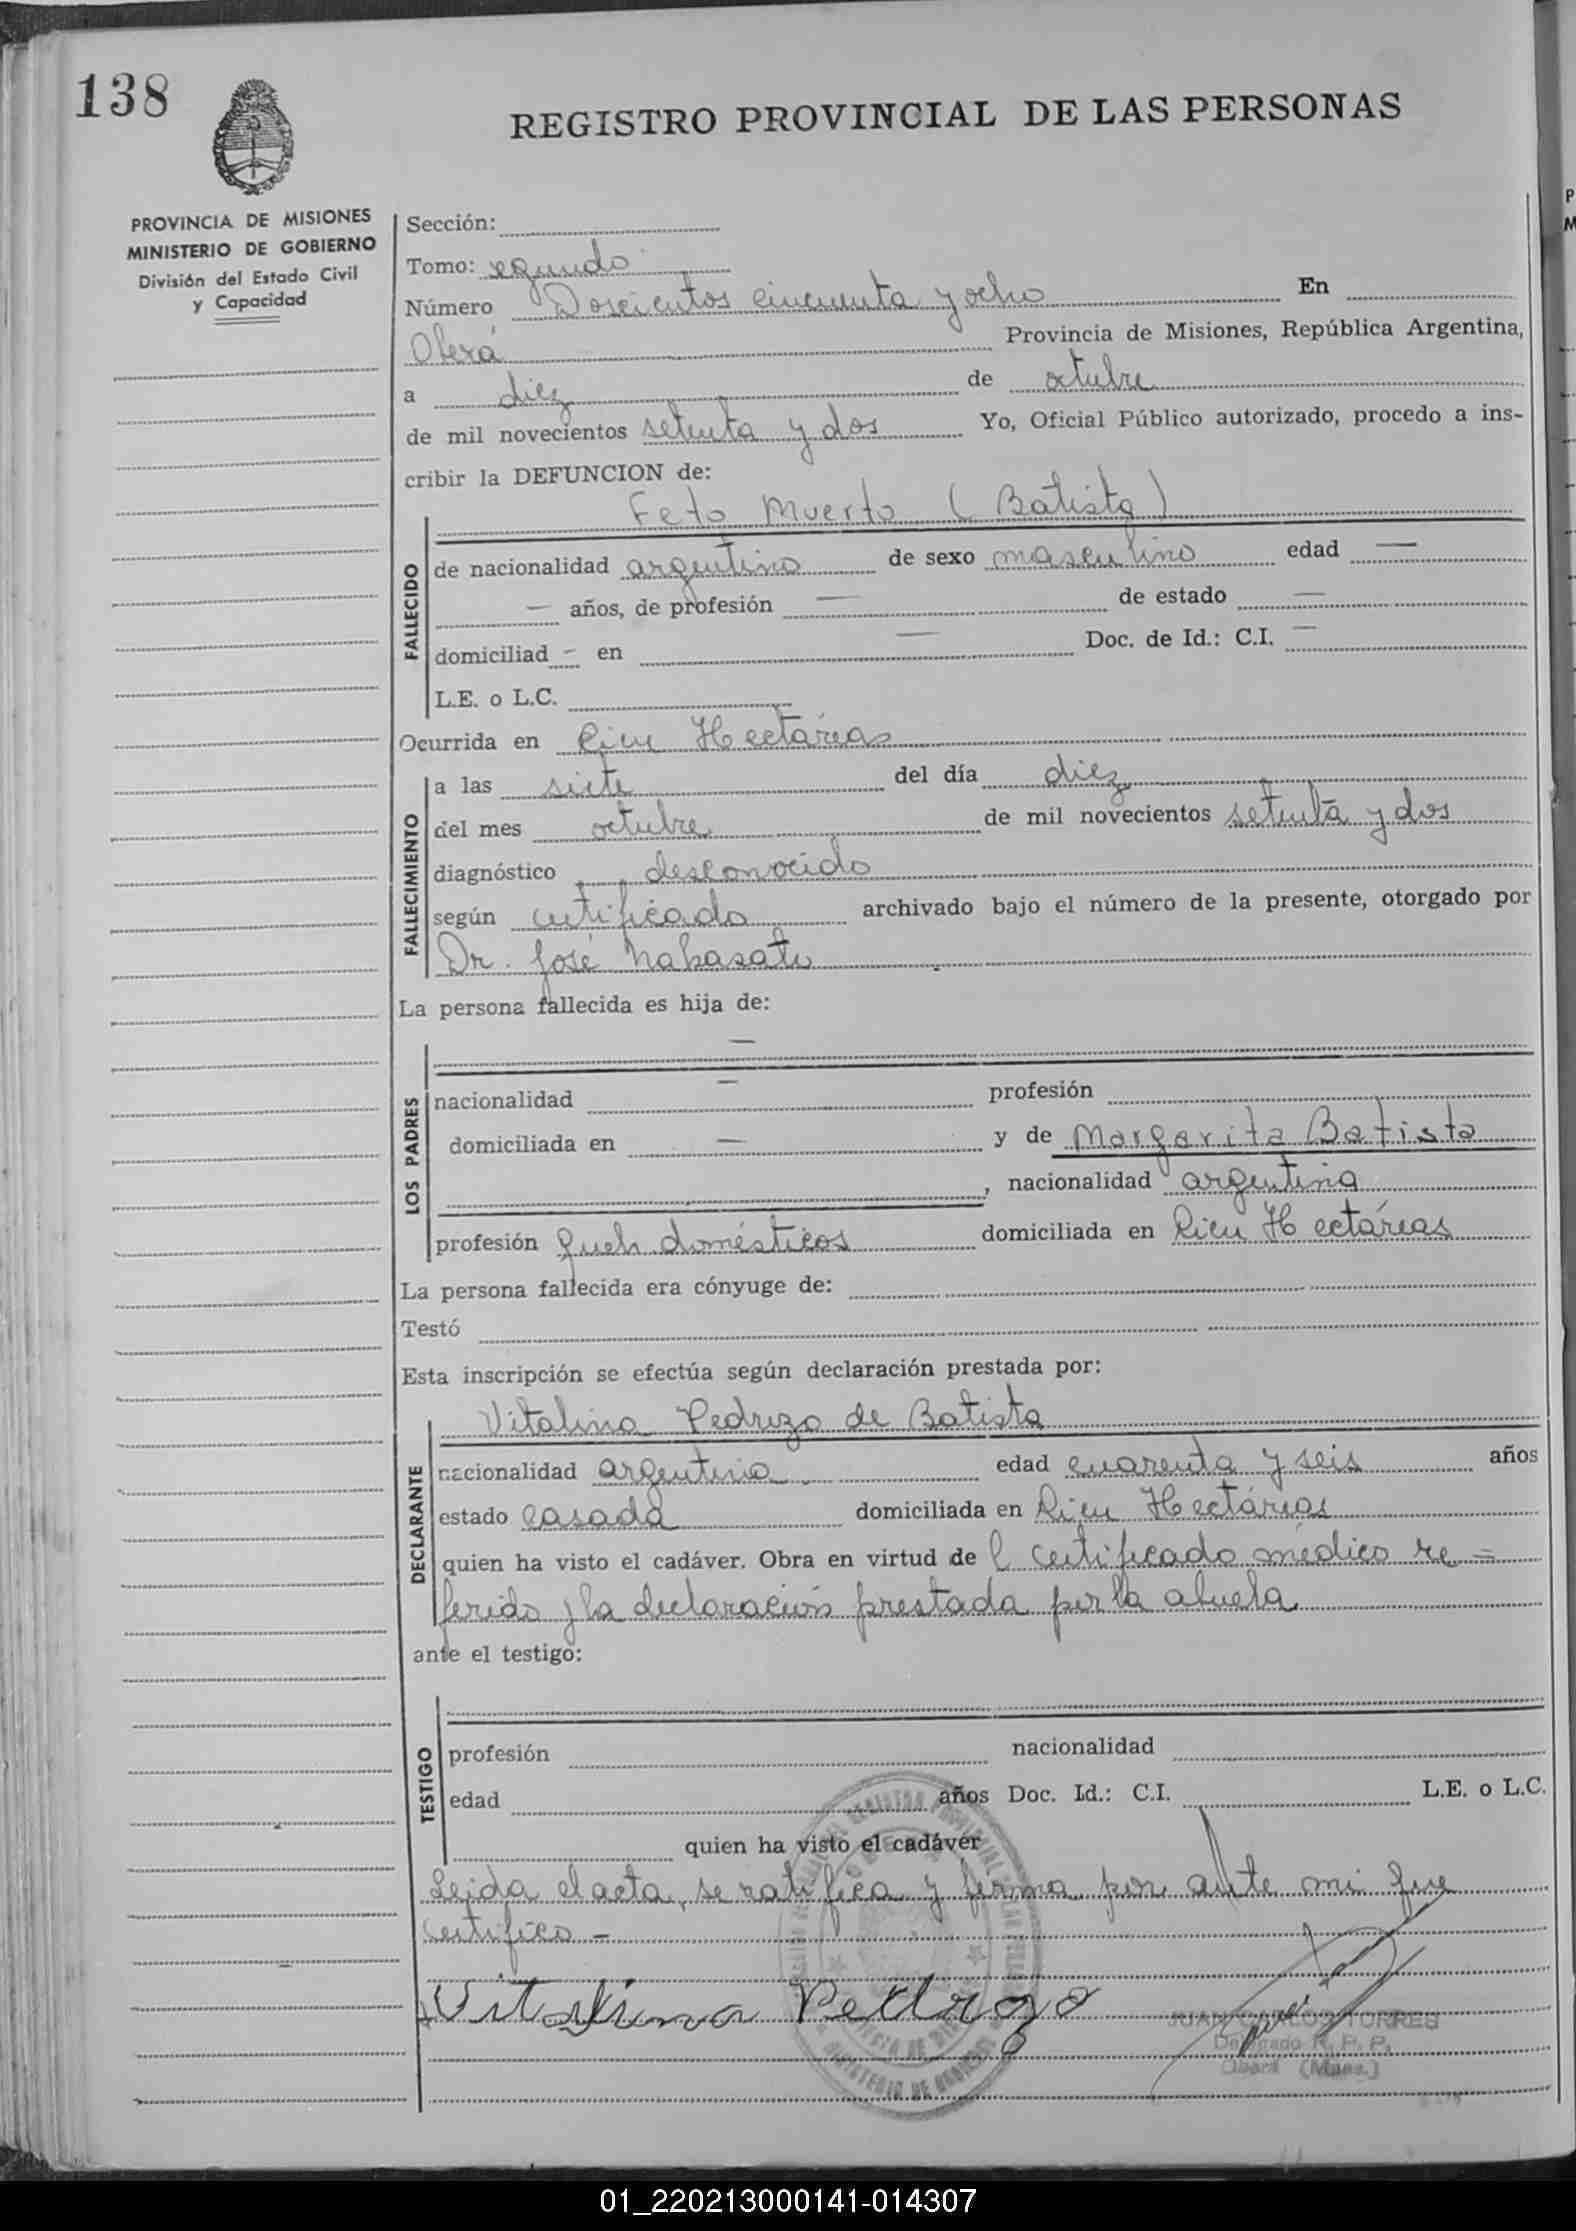 138
REGISTRO PROVINCIAL DE LAS PERSONAS
PROVINCIA DE MISIONES
MINISTERIO DE GOBIERNO
División del Estado Civil
y Capacidad
Sección:
Tomo: segundo
Número Doscientos cincuenta y ocho En
Oberá Provincia de Misiones, República Argentina,
a diez de octubre
de mil novecientos setenta y dos Yo, Oficial Público autorizado, procedo a ins-
cribir la DEFUNCION de:
Feto Muerto (Batista)
FALLECIDO
de nacionalidad argentino de sexo masculino edad —
— años, de profesión — de estado —
domiciliad - en — Doc. de Id.: C.I. —
L.E. o L.C.
Ocurrida en Cien Hectáreas
FALLECIMIENTO
a las siete del día diez
del mes octubre de mil novecientos setenta y dos
diagnóstico desconocido
según certificado archivado bajo el número de la presente, otorgado por
Dr. José Nakasato
La persona fallecida es hija de:
—
LOS PADRES
nacionalidad — profesión
domiciliada en — y de Margarita Batista
, nacionalidad argentina
profesión queh. domésticos domiciliada en Cien Hectáreas
La persona fallecida era cónyuge de:
Testó
Esta inscripción se efectúa según declaración prestada por:
Vitalina Pedrozo de Batista
DECLARANTE
nacionalidad argentina edad cuarenta y seis años
estado casada domiciliada en Cien Hectáreas
quien ha visto el cadáver. Obra en virtud de l certificado médico re=
ferido y la declaración prestada por la abuela
ante el testigo:
TESTIGO
profesión nacionalidad
edad años Doc. Id.: C.I. L.E. o L.C.
quien ha visto el cadáver
Leida el acta, se ratifica y firma por ante mi que
certifico -
Vitalina Pedrozo
JUAN CARLOS TORRES
Delegado R. P. P.
Oberá (Mnes.)
01_220213000141-014307